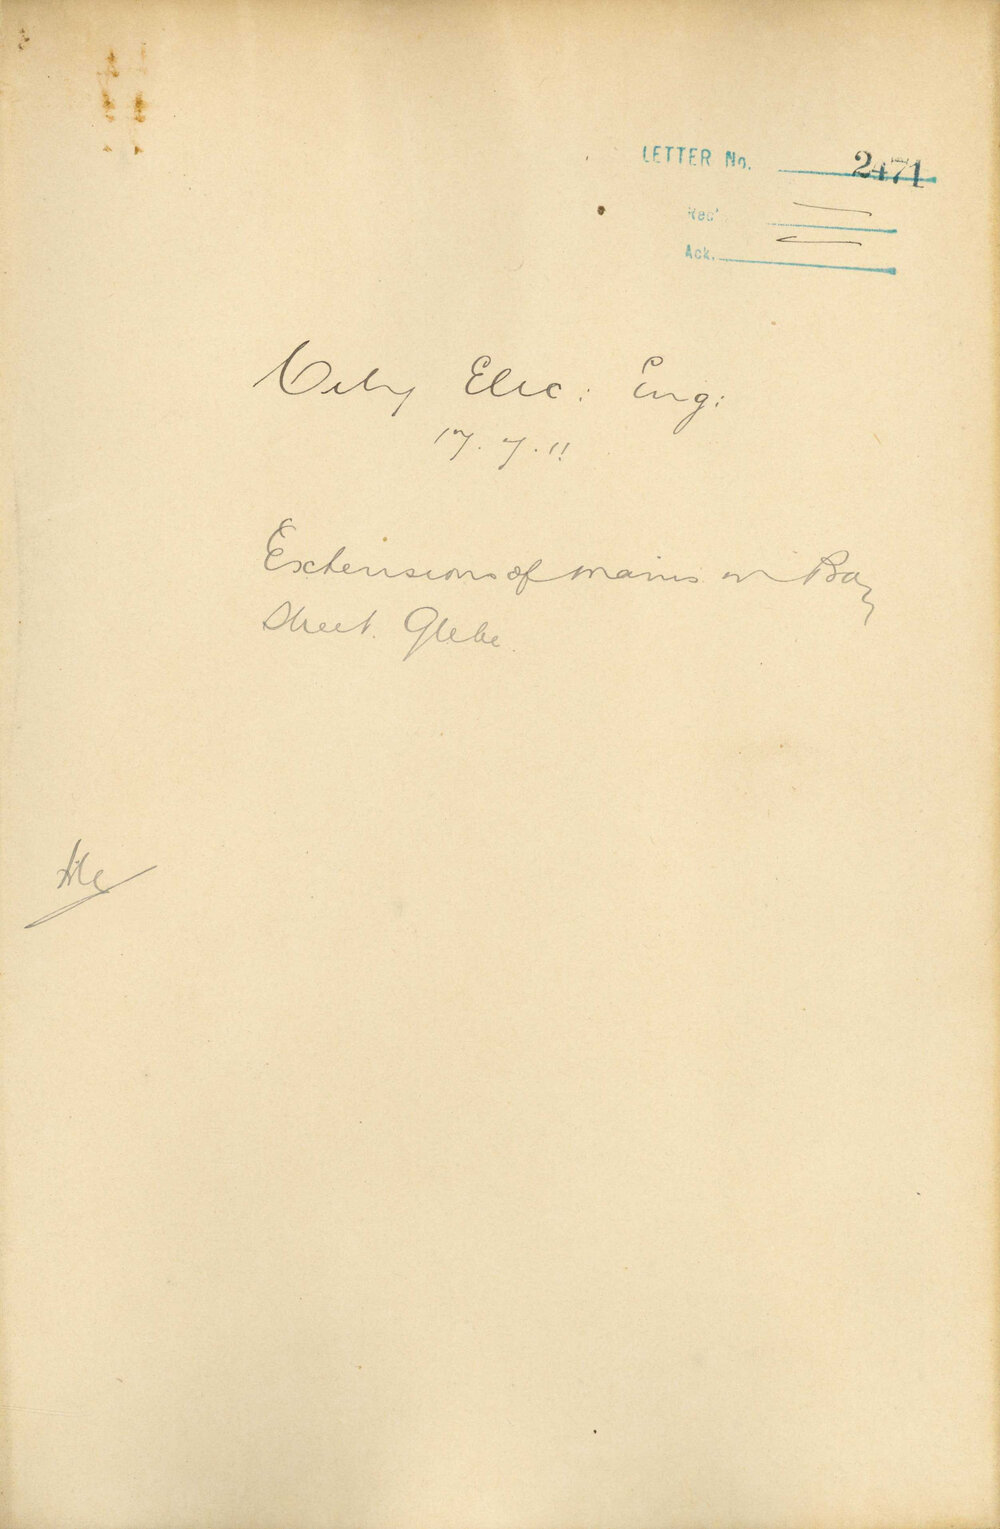 LETTER No. 2471
Rec'
Ack.
City Elec: Eng:
17.7.11
Extension of mains in Bay
Street. Glebe